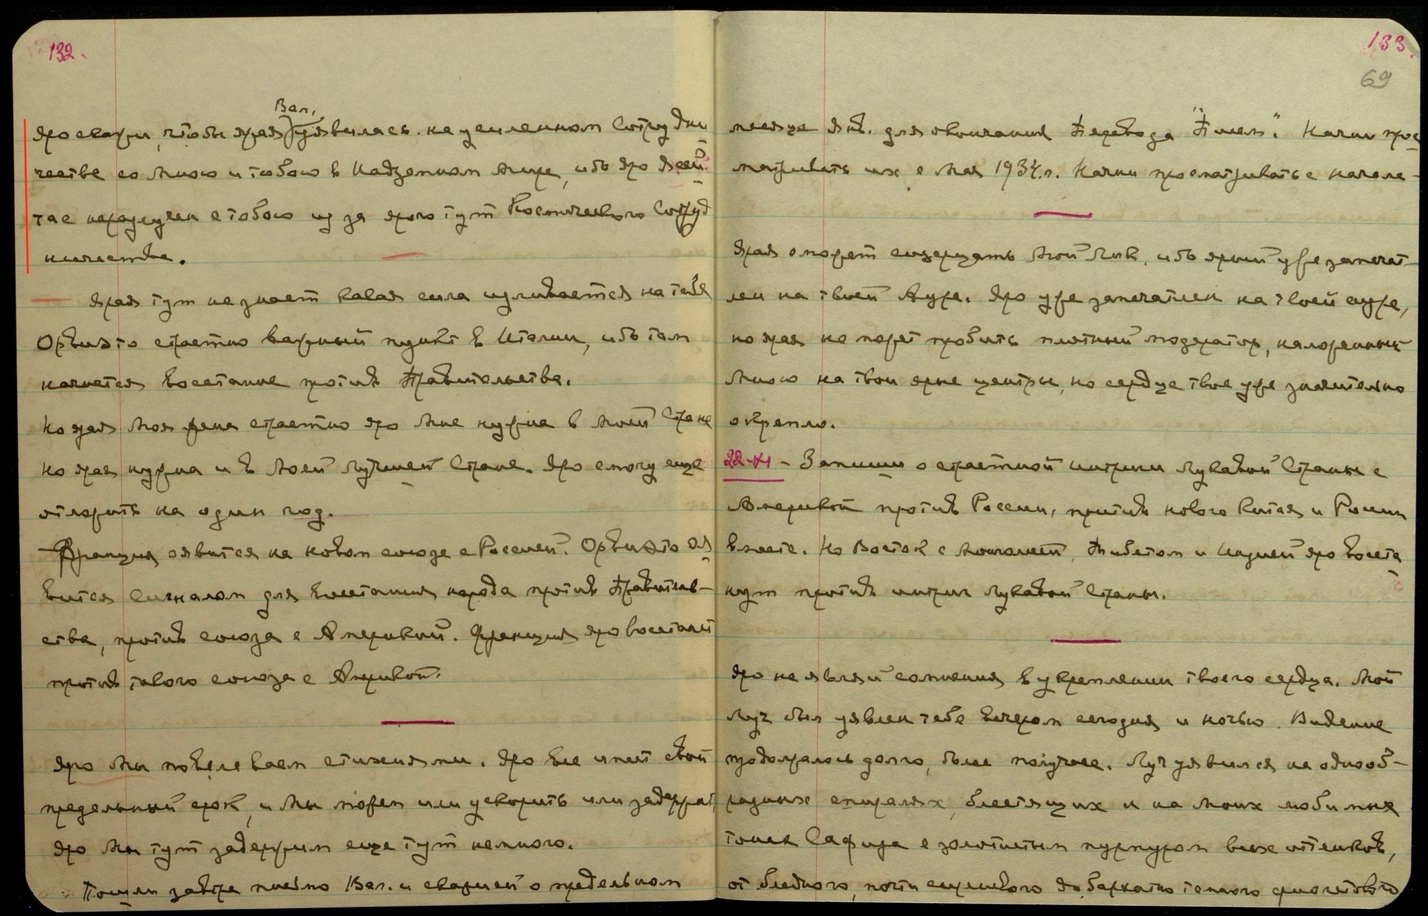 132.
Вал.
Яро скажи, чтобы ярая уявилась на усиленном сотрудни-
честве со Мною и тобою в Надземном Мире, ибо Яро Я сей-
час неразлучен с тобою из за ярого тут Космического Сотруд
ничества.
Ярая тут не знает какая сила изливается на тебя
Орвието страстно важный пункт в Италии, ибо там
начнется восстание против Правительства.
Но ярая Моя страстно яро Мне нужна в Моей Стране
но ярая нужна и в Моей лучшей Стране. Яро смогу еще
отложить на один год.
Франция явится на новом союзе с Россией. Орвието оя
вится сигналом для восстания народа против Правитель-
ства, против союза с Америкой. Франция яро восстанет
против такого союза с Америкой.
Яро Мы повелеваем стихиями. Яро все имеет свой
предельный срок, и Мы можем или ускорить или задержать
Яро Мы тут задержим еще тут немного.
Пошли завтра письмо Вал. и скажи ей о предельном
133.
69
месяце Янв. для окончания Перевода "Писем". Начни прос
матривать их с Мая 1934.г. Начни просматривать с начала-
Ярая сможет созерцать Мой Лик, ибо ярый уже запечат
лен на твоей Ауре. Яро уже запечатлен на твоей ауре,
но ярая не может пробить плотный модератор, наложенный
Мною на твои ярые центры, но сердце твое уже значительно
окрепло.
22-XI - Запиши о страстной интриги Лукавой Страны с
Америкой против России, против нового Китая и России
вместе. Но Восток с Монголией, Тибетом и Индией яро восста
нут против интриг Лукавой Страны.
Яро не являй сомнения в укреплении твоего сердца. Мой
Луч был уявлен тебе вечером сегодня и ночью. Видение
продолжалось долго, более получаса. Луч уявился на однооб-
разных спиралях, блестящих и на Моих любимых
тонах Сафира с золотистым пурпуром всех оттенков,
от бледного, почти до бархатно темного фиолетового